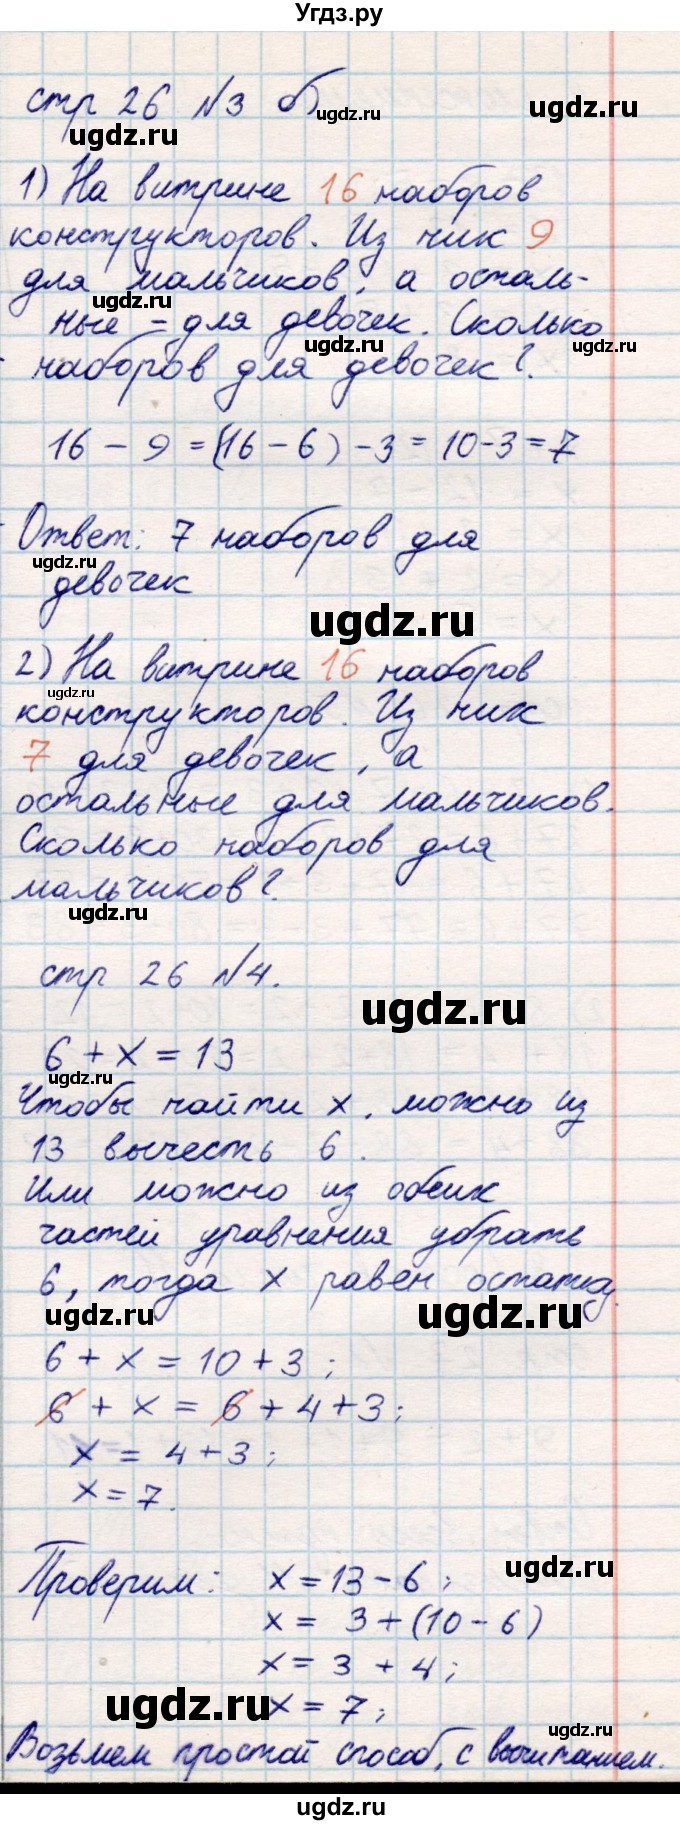 Угдз.ру
стр 26 №3 б)
ugdz.ru
ugdz.ru
ugdz.ru
1) На витрине 16 наборов
конструкторов. Из них 9
для мальчиков, а осталь-
ugdz.ru
ные - для девочек. Сколько
ugdz.ru
ugdz.ru
наборов для девочек?
16 - 9 = (16 - 6) - 3 = 10 - 3 = 7
Ответ: 7 наборов для
ugdz.ru
девочек
ugdz.ru
2) На витрине 16 наборов
ugdz.ru
конструкторов. Из них
7 для девочек, а
остальные для мальчиков.
Сколько наборов для
мальчиков?
ugdz.ru
стр 26 №4.
ugdz.ru
6 + x = 13
ugdz.ru
Чтобы найти x, можно из
13 вычесть 6.
Или можно из обеих
частей уравнения убрать
6, тогда x равен остатку.
ugdz.ru
ugdz.ru
6 + x = 10 + 3;
6 + x = 6 + 4 + 3;
x = 4 + 3;
x = 7.
ugdz.ru
Проверим: x = 13 - 6;
x = 3 + (10 - 6)
x = 3 + 4;
ugdz.ru
x = 7;
ugdz.ru
Возьмем простой способ, с вычитанием.
ugdz.ru